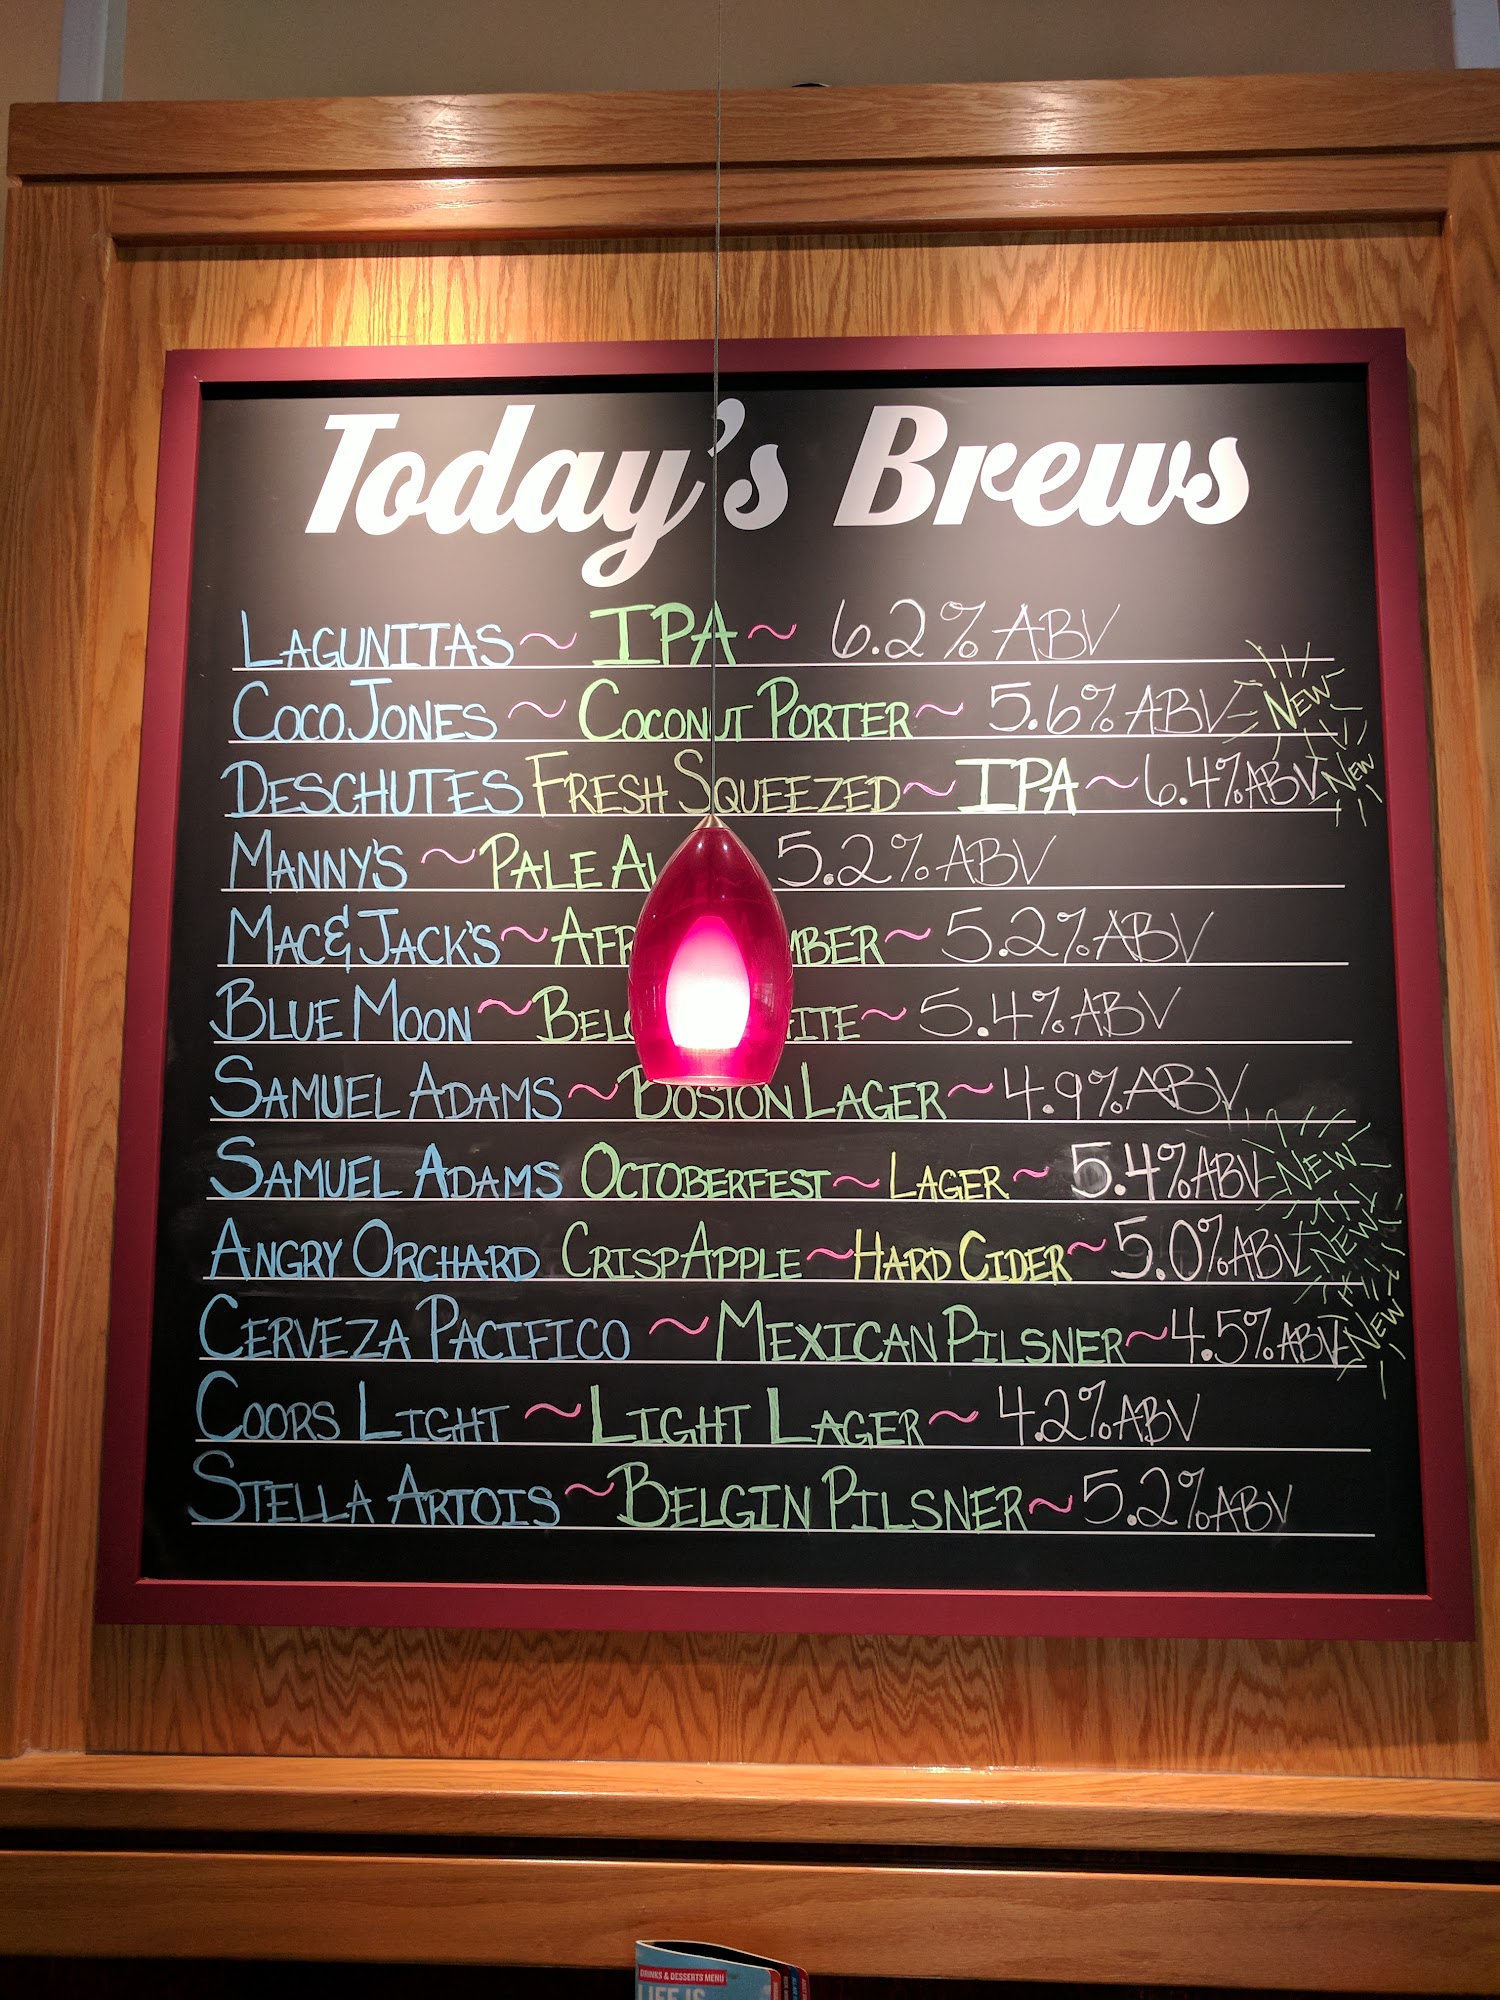 Today's Brews
LAGUNITAS ~ IPA ~ 6.2% ABV
COCO JONES ~ COCONUT PORTER ~ 5.6% ABV NEW
DESCHUTES FRESH SQUEEZED ~ IPA ~ 6.4% ABV NEW
MANNY'S ~ PALE 5.2% ABV
MAC & JACK'S ~ ~ 5.2% ABV
BLUE MOON ~ ~ 5.4% ABV
SAMUEL ADAMS ~ BOSTON LAGER ~ 4.9% ABV
SAMUEL ADAMS OCTOBERFEST ~ LAGER ~ 5.4% ABV NEW
ANGRY ORCHARD CRISP APPLE ~ HARD CIDER ~ 5.0% ABV NEW
CERVEZA PACIFICO ~ MEXICAN PILSNER ~ 4.5% ABV NEW
COORS LIGHT ~ LIGHT LAGER ~ 4.2% ABV
STELLA ARTOIS ~ BELGIN PILSNER ~ 5.2% ABV
DRINKS & DESSERTS MENU
LIFE IS